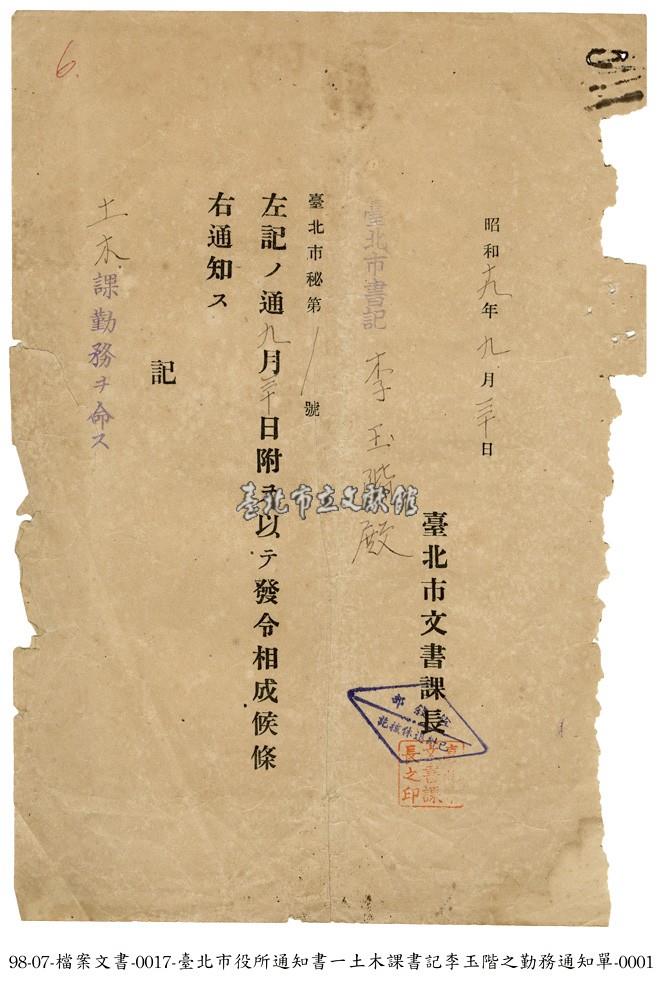 6.
昭和十九年九月三十日
臺北市文書課長
文書課
長之印
臺北市書記 李玉階殿
臺北市秘第1號
左記ノ通九月三十日附ヲ以テ發令相成候條
右通知ス
記
土木課勤務ヲ命ス
臺北市立文獻館
98-07-檔案文書-0017-臺北市役所通知書一土木課書記李玉階之勤務通知單-0001